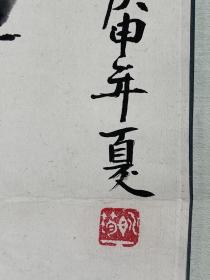 庚申年夏